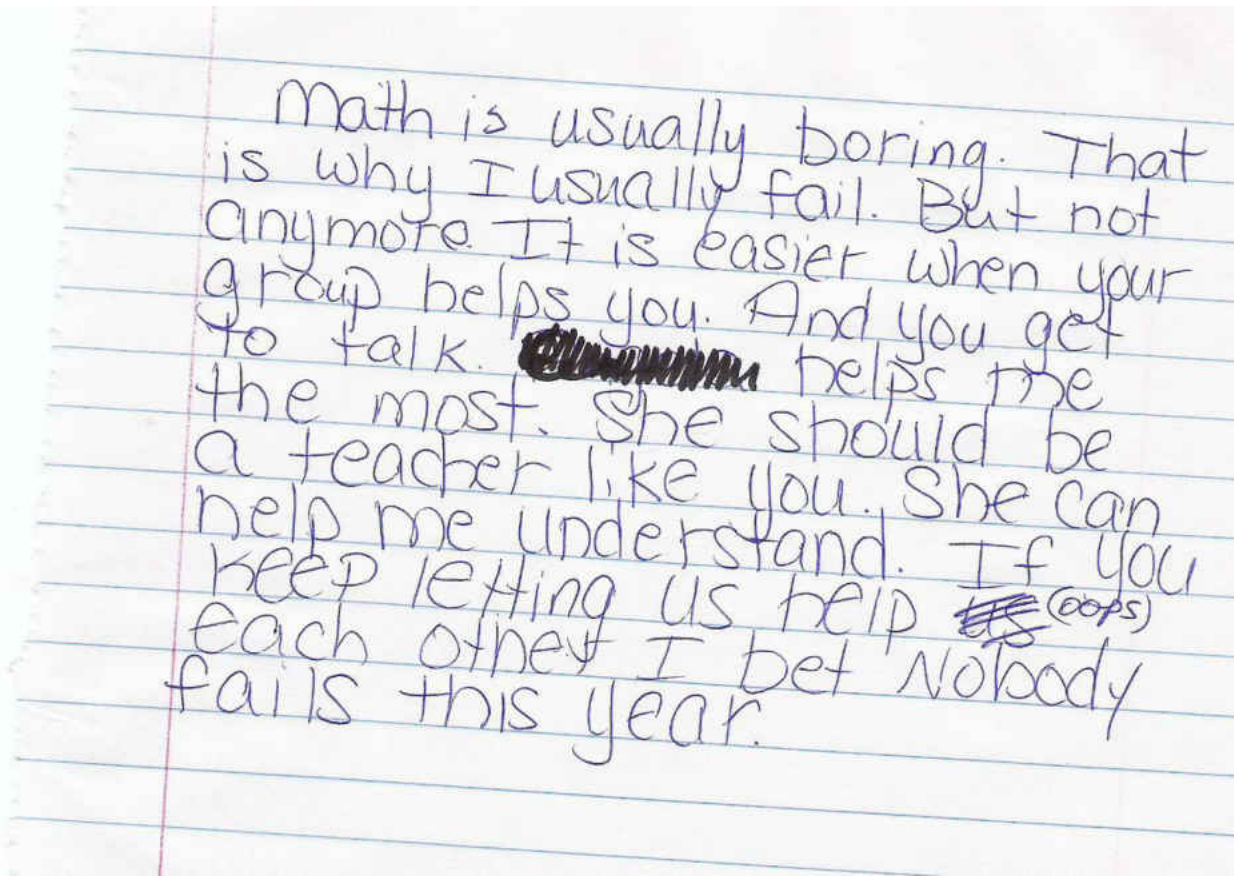 Math is usually boring. That
is why I usually fail. But not
anymore. It is easier when your
group helps you. And you get
to talk. helps me
the most. She should be
a teacher like you. She can
help me understand. If you
keep letting us help (oops)
each other I bet Nobody
fails this year.